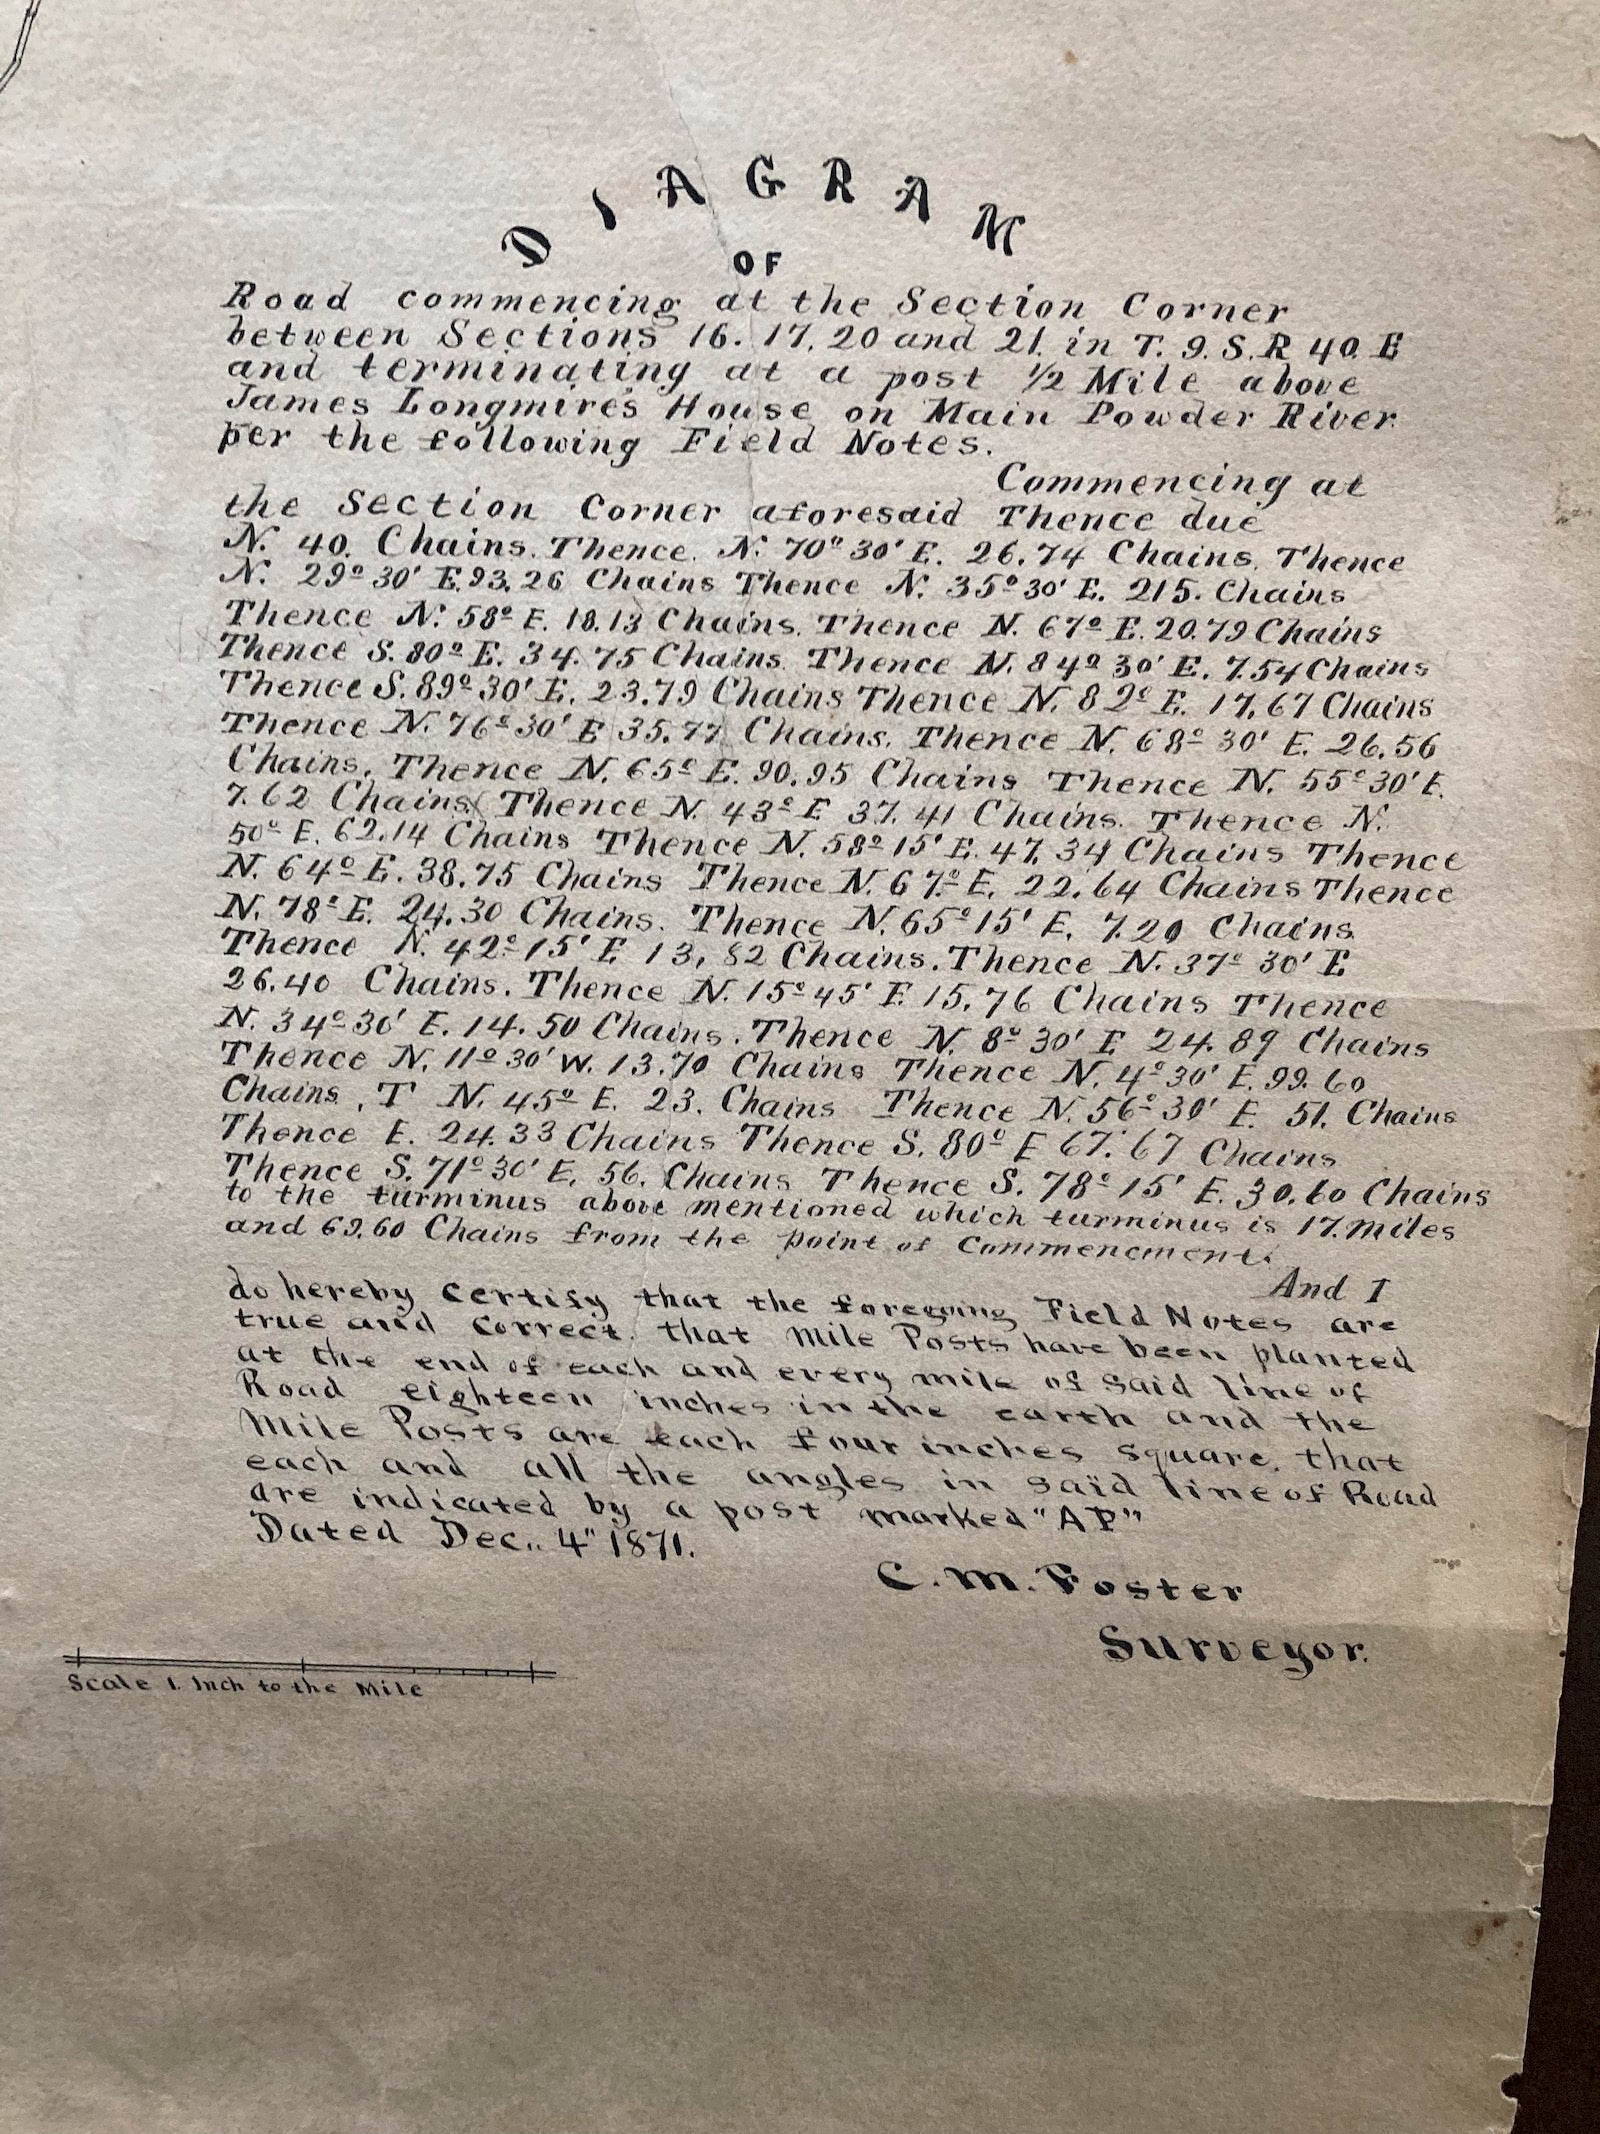 DIAGRAM
OF
Road commencing at the Section Corner
between Sections 16. 17. 20 and 21. in T. 9. S. R 40. E
and terminating at a post 1/2 Mile above
James Longmire's House on Main Powder River.
per the following Field Notes.
Commencing at
the Section Corner aforesaid Thence due
N. 40. Chains. Thence. N. 70° 30' E. 26.74 Chains. Thence
N. 29° 30' E. 93.26 Chains Thence N. 35° 30' E. 215. Chains
Thence N. 58° E. 18.13 Chains. Thence N. 67° E. 20.79 Chains
Thence S. 80° E. 34.75 Chains. Thence N. 84° 30' E. 7.54 Chains
Thence S. 89° 30' E. 23.79 Chains Thence N. 82° E. 17.67 Chains
Thence N. 76° 30' E 35.77 Chains. Thence N. 68° 30' E. 26.56
Chains. Thence N. 65° E. 90.95 Chains Thence N. 55° 30' E.
7.62 Chains Thence N. 43° E 37.41 Chains. Thence N.
50° E. 62.14 Chains Thence N. 58° 15' E. 47.34 Chains Thence
N. 64° E. 38.75 Chains Thence N. 67° E. 22.64 Chains Thence
N. 78° E. 24.30 Chains. Thence N. 65° 15' E. 7.20 Chains
Thence N. 42° 15' E 13.82 Chains. Thence N. 37° 30' E
26.40 Chains. Thence N. 15° 45' E 15.76 Chains Thence
N. 34° 30' E. 14.50 Chains. Thence N. 8° 30' E 24.89 Chains
Thence N. 11° 30' W. 13.70 Chains Thence N. 4° 30' E. 99.60
Chains. T N. 45° E. 23. Chains Thence N. 56° 30' E. 51. Chains
Thence E. 24.33 Chains Thence S. 80° E 67.67 Chains
Thence S. 71° 30' E. 56. Chains Thence S. 78° 15' E. 30.60 Chains
to the turminus above mentioned which turminus is 17. miles
and 69.60 Chains from the point of Commencment.
And I
do hereby certify that the foregoing Field Notes are
true and correct. that Mile Posts have been planted
at the end of each and every mile of said line of
Road eighteen inches in the earth and the
Mile Posts are each four inches square. that
each and all the angles in said line of Road
are indicated by a post marked "AP"
Dated Dec.. 4" 1871.
C. M. Foster
Surveyor.
Scale 1. Inch to the Mile